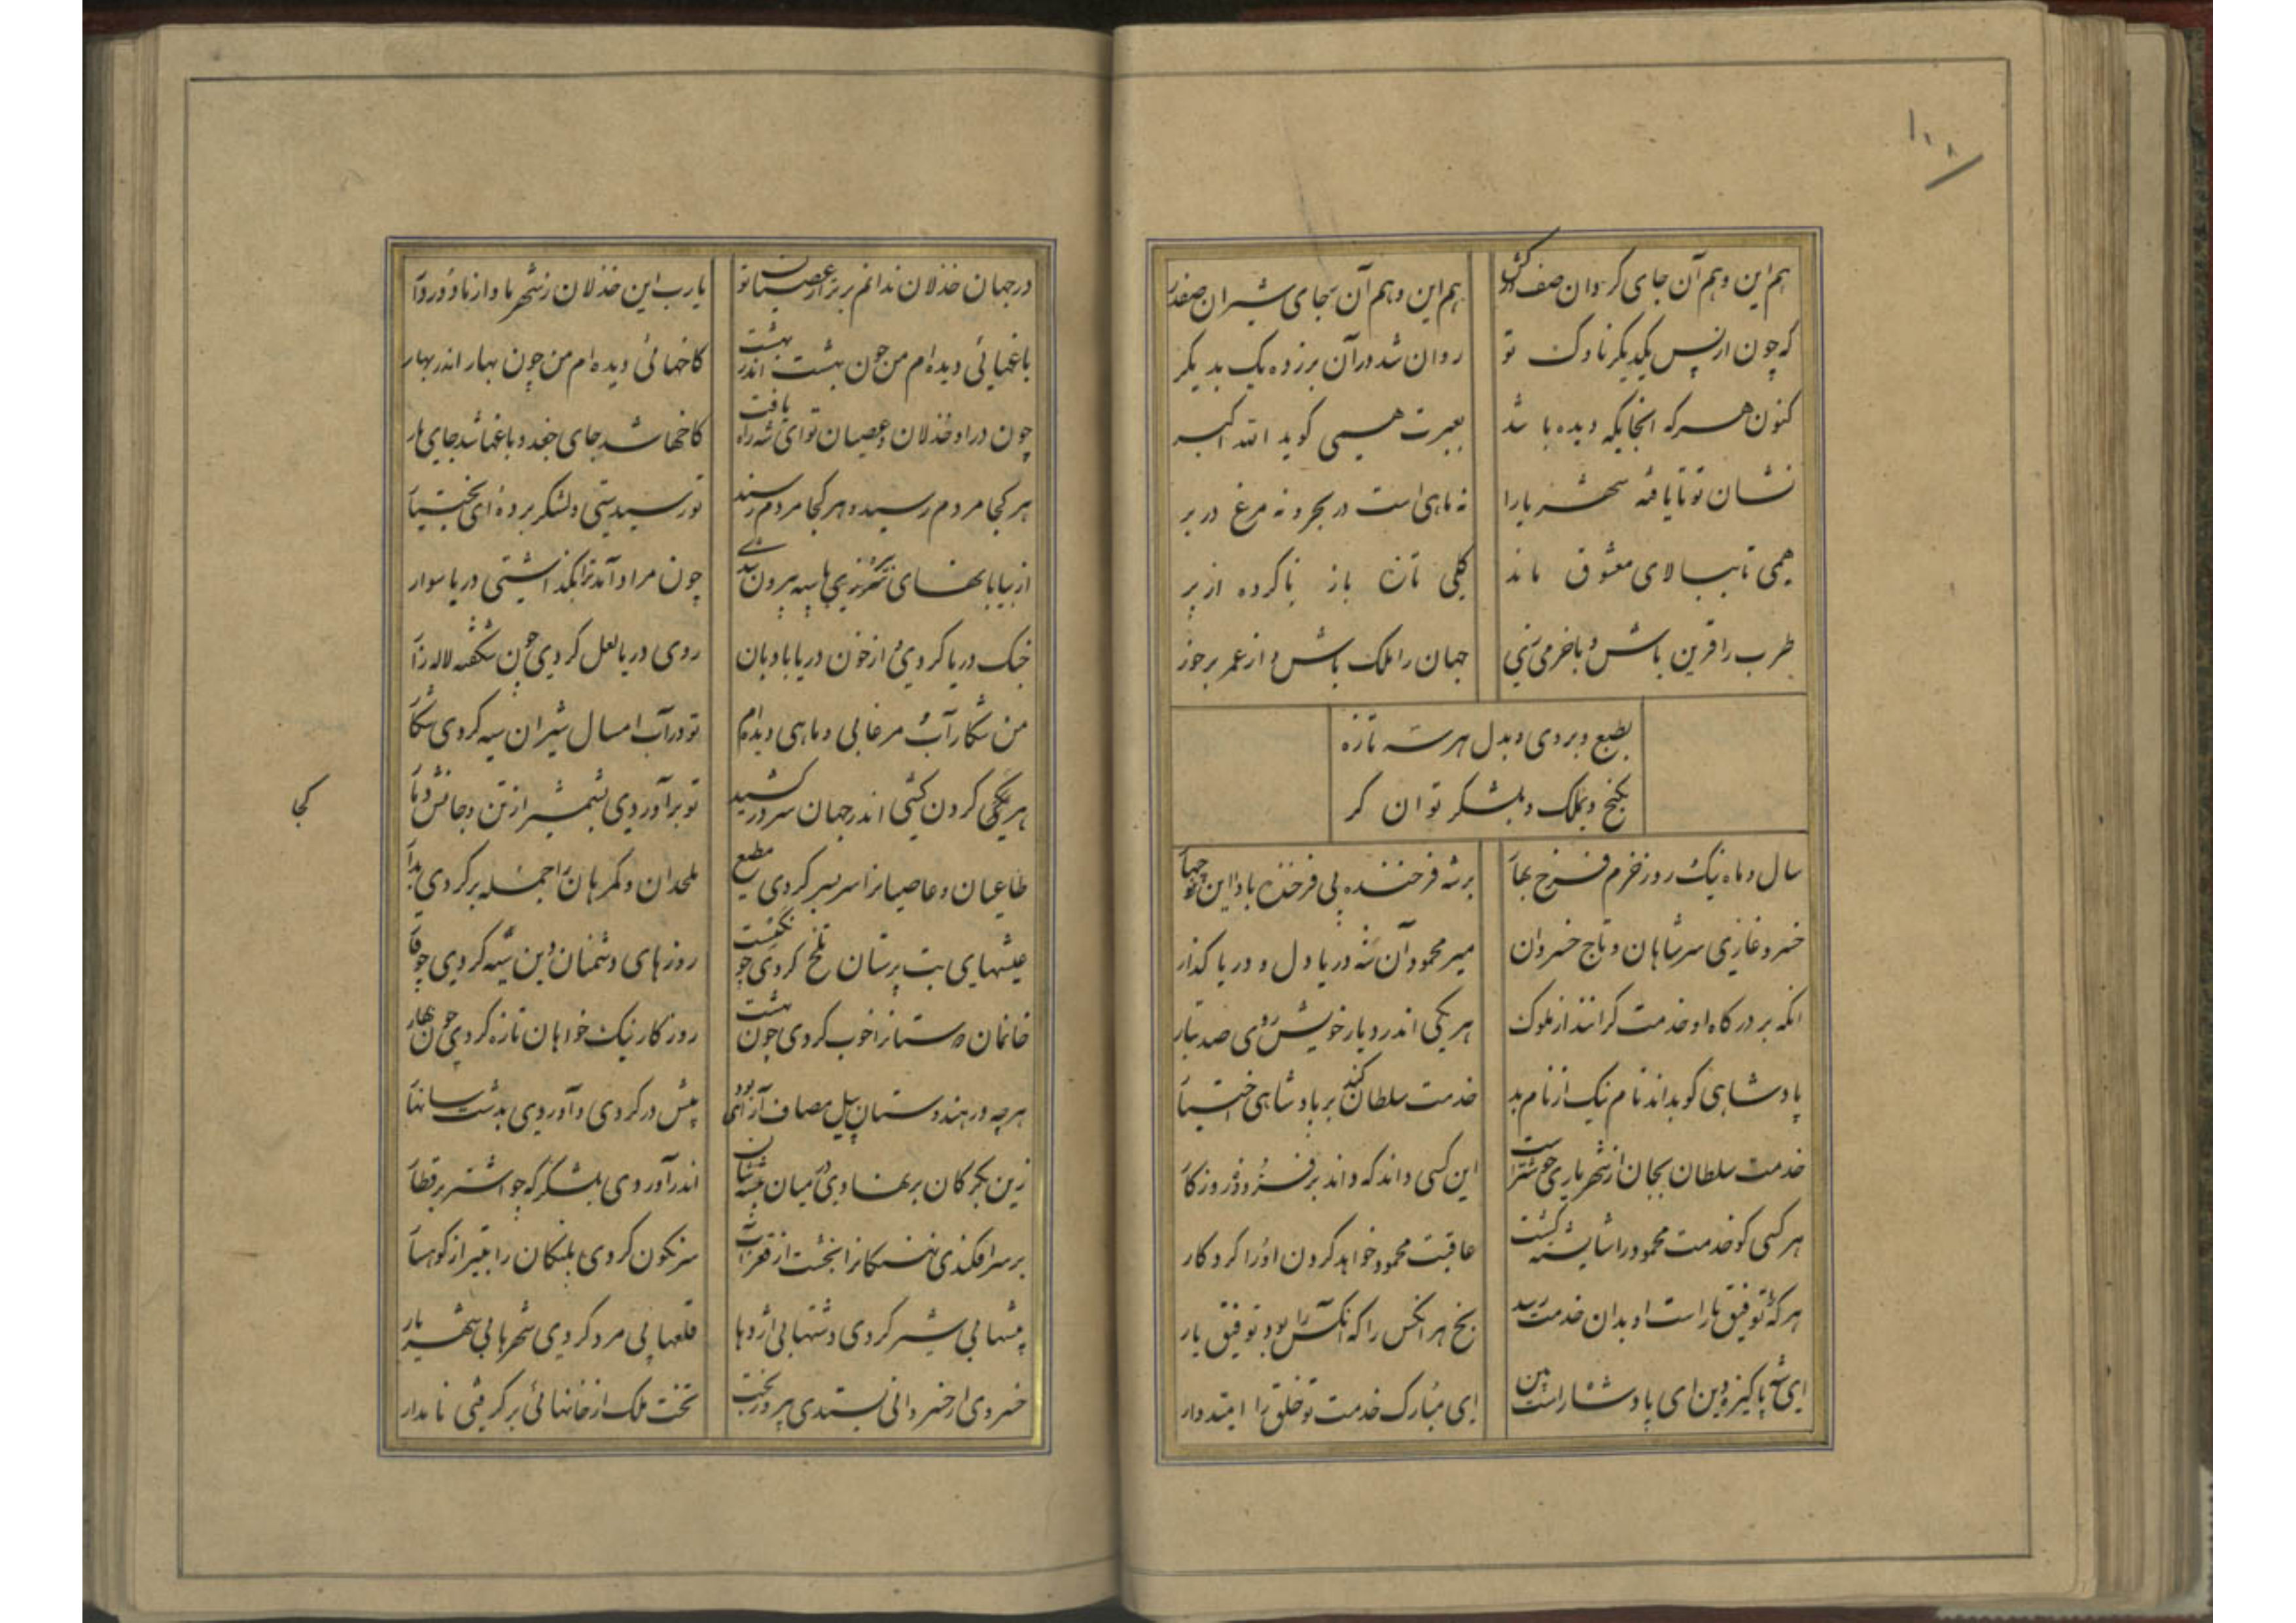 ۱۰۸
هم این و هم آن جای کردان صف کش
هم این و هم آن بجای شیران صفدر
که چون از پس یکدیگر ناوک تو
روان شد در آن برزده یک بدیگر
کنون هر که انجایگه دیده باشد
بعبرت همی گوید الله اکبر
نشان تو تا یافه شهریارا
نه ماهی است در بحر و نه مرغ در بر
همی تا ببالای معشوق ماند
کلی تازه باز ناکرده از بر
طرب را قرین باش و با خرمی زی
جهان را ملک باش و از عمر برخور
بطبع و بروی و بدل هر سه تازه
بکنج و بملک و بلشکر توان کر
سال و ماه نیک و روز خرم فرخ بهار
بر شه فرخنده پی فرخنده باد این هر چهار
خسرو غازی سر شاهان و تاج خسروان
میر محمود آن شه دریا دل و دریا کذار
انکه بر درکاه او خدمت کرانند از ملوک
هر یکی اندر دیار خویش روی صد تبار
پادشاهی کو بداند نام نیک از نام بد
خدمت سلطان کند بر پادشاهی اختیار
خدمت سلطان بجان از شهریاری خوشتر است
این کسی داند که داند برفروز و روزکار
هر کسی کو خدمت محمود را شایسته کشت
عاقبت محمود خواهد کردن او را کردکار
هر که توفیق یار است او بدان خدمت رسد
بخ بخ هر انکس را که انکس را بود توفیق یار
ای شه پاکیزه دین ای پادشاه راستین
ای مبارک خدمت تو خلق را امیدوار
در جهان خذلان ندانم برتر از عصیان تو
یا رب این خذلان ز شهر ما و از ما دور دار
باغهائی دیده ام من چون بهشت اندر بهشت
کاخهائی دیده ام من چون بهار اندر بهار
چون در او خذلان و عصیان تو ای شه راه یافت
کاخها شد جای جغد و باغها شد جای مار
هر کجا مردم رسیده و هر کجا مردم رسند
تو رسیدستی و لشکر برده ای بختیار
از بیابانهای بی ره با سپه بیرون شدی
چون مراد آمد ترا بکذاشتی دریا سوار
خنک دریا کردی و از خون دریا بادبان
روی دریا لعل کردی چون شکفته لاله زار
من شکار آب مرغابی و ماهی دیده ام
تو در آب امسال شیران سیه کردی شکار
هر یکی کردن کشی اندر جهان سر در کشید
تو برآوردی بشمشیر از تن و جانش دمار
طاعیان و عاصیانرا سر بسر کردی مطیع
ملحدان و کمرهان را جمله بر کردی بدار
عیشهای بت پرستان تلخ کردی چو کبست
روزهای دشمنان دین سیه کردی چو قار
خانمان دوستانرا خوب کردی چون بهشت
روزکار نیک خواهان تازه کردی چون بهار
هرچه در هندوستان پیل مصاف آرای بود
پیش در کردی و آوردی بدشت
زین بکرکان برنهادی در میان بیشه شان
اندر آوردی بلشکر که چو اشتر بر قطار
بر سر افکندی نهنکانرا بخشت از قعر آب
سرنکون کردی پلنکان را بتیر از کوهسار
بیشها بی شیر کردی دشتها بی اژدها
قلعها بی مرد کردی شهرها بی شهریار
خسروی از خسروانی بستدی پیروزبخت
تخت ملک از خانهائی برکرفتی نامدار
کجا